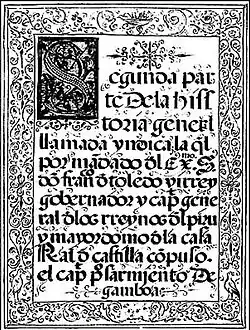 Segunda par
te De la hiſt
toria general
llamada yndica la q̃l
por mãdado ð̃l Exmo. S.
don franco ð toledo virrey
gobernador y cap̃ gene
ral ð los rreynos ð̃l piru
y mayordomo ð la casa
Real ð castilla cõpuso.
el cap̃ po sarmiento De
gamboa.